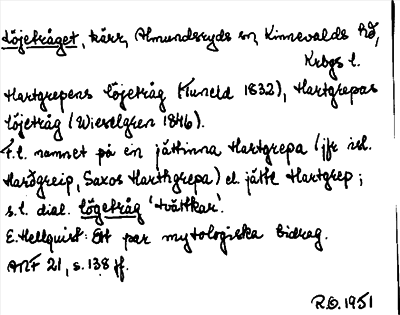 Löjetråget, kärr, Almundsryds sn, Kinnevalds hd,
Krbgs l.
Hartgrepens Löjetråg (Tuneld 1832), Hartgrepas
Löjetråg (Wieselgren 1846).
F.l. namnet på en jättinna Hartgrepa (jfr isl.
Harðgreip, Saxos Harthgrepa) el. jätte Hartgrep;
s.l. dial. lögetråg 'tvättkar'.
E. Hellquist: Ett par mytologiska bidrag.
ANF 21, s. 138 ff.
R.O. 1951